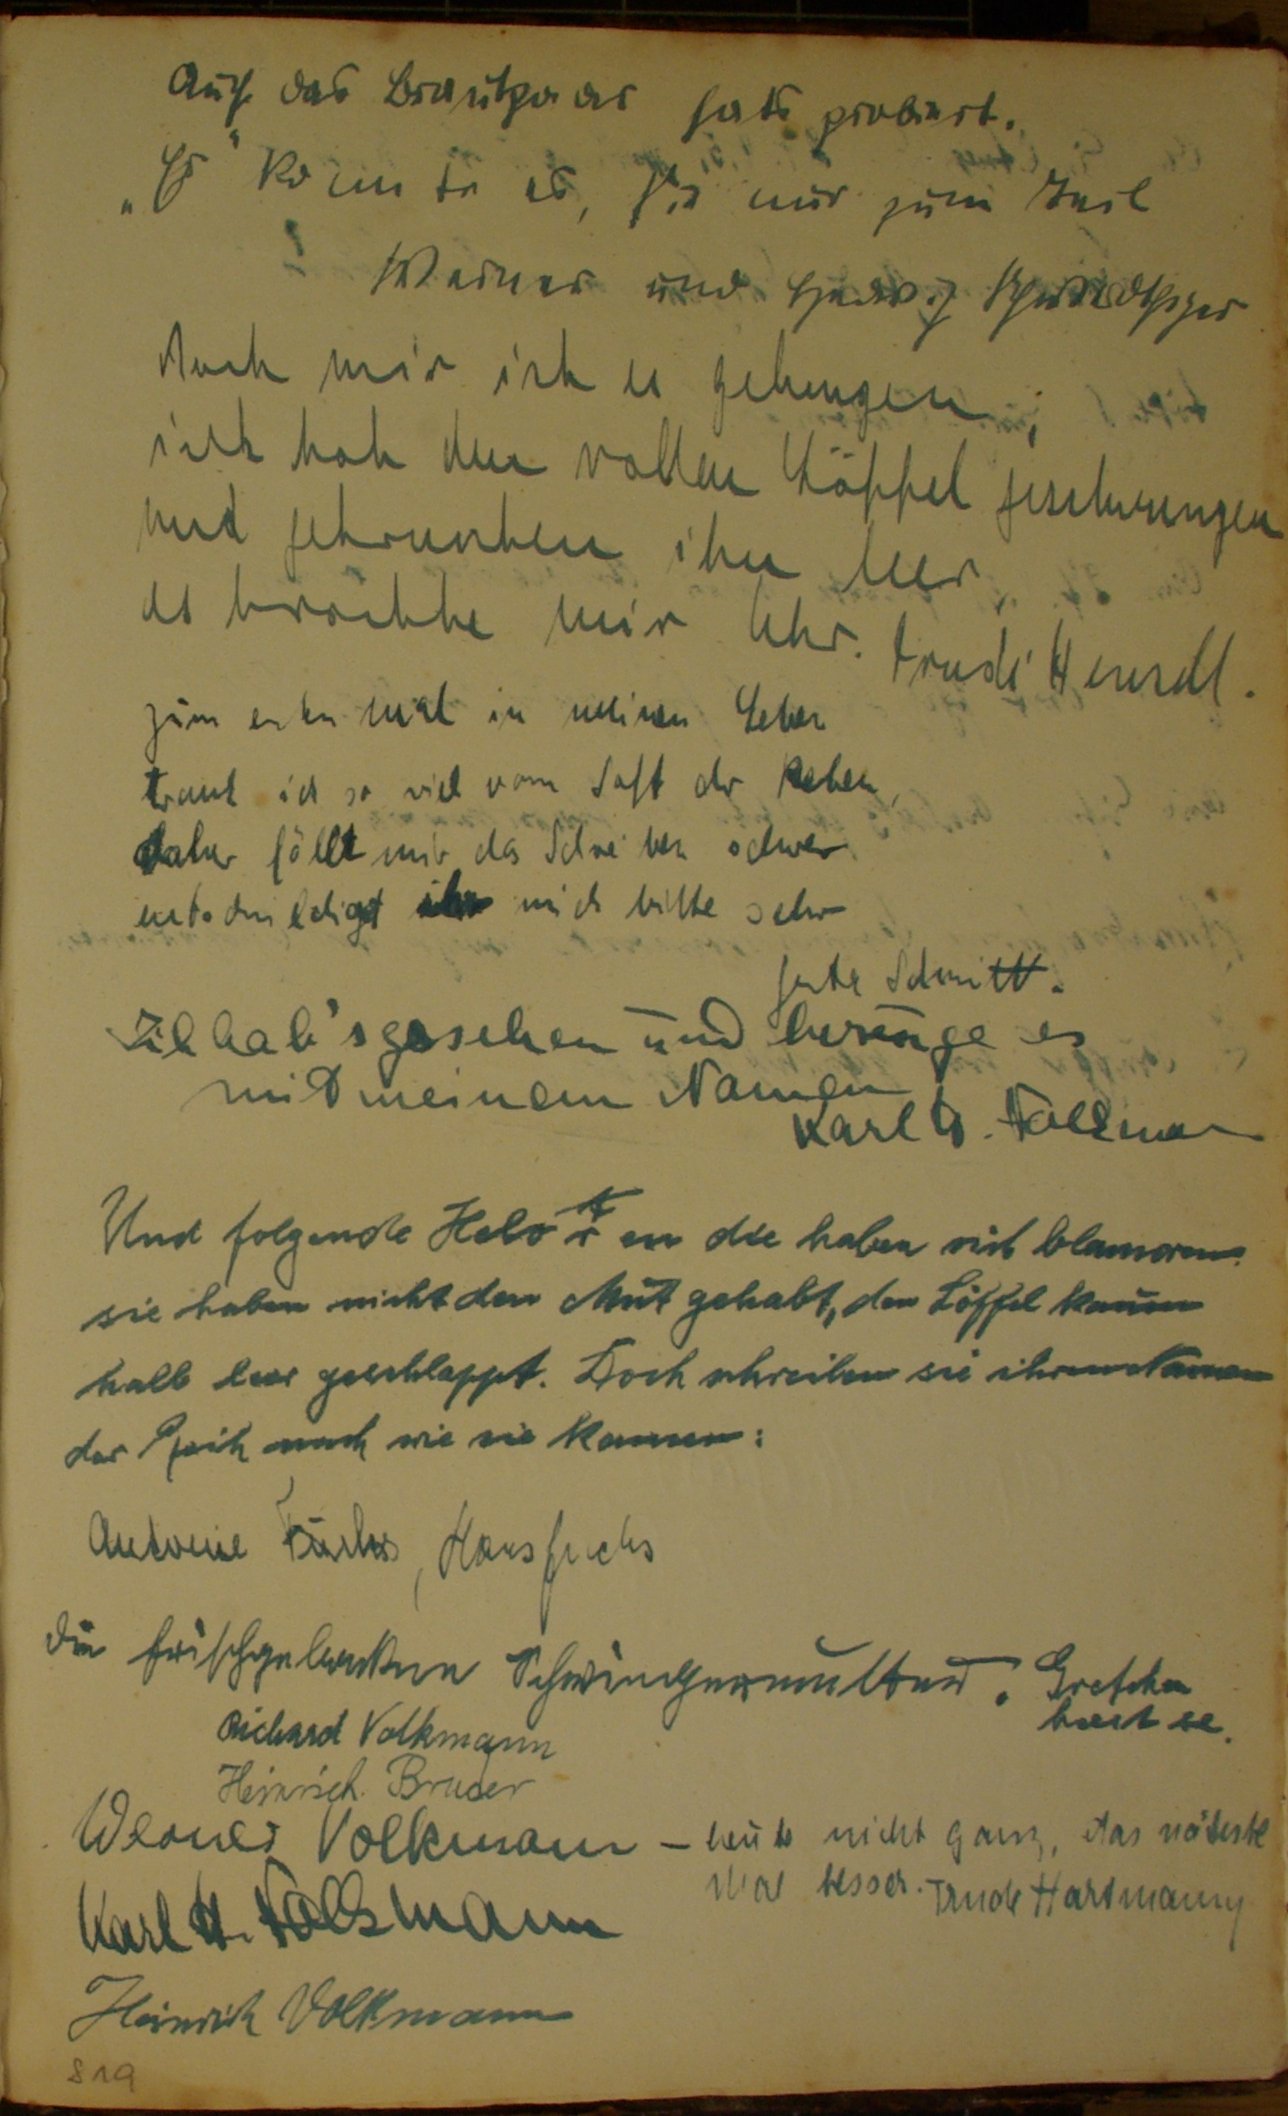 Auch das Brautpaar hats probiert.
„Er" konnte es, „Sie" nur zum Teil
Werner und Hedwig
Auch mir ist es gelungen,
ich hab den vollen Löffel geschwungen
und getrunken ihn leer,
es brächte mir Ehr. Trudi
zum ersten mal in meinem Leben
trank ich so viel vom Saft der Reben,
daher fällt mir das Schreiben schwer
entschuldigt mich bitte sehr
Schmitt.
Ich hab's gesehen und bezeuge es
mit meinem Namen
Karl H. Volkmann
Und folgende Helo t en die haben sich blamoren
sie haben nicht den Mut gehabt, den Löffel kaum
halb leer geschlappt. Doch schreiben sie ihren Namen
der Reih nach wie sie kamen:
Antonie Fuchs, Hans Fuchs
die frischgebackene Schwiegermutter. Gretchen
Richard Volkmann
Heinrich Bruder
Werner Volkmann – heute nicht ganz, das nächste
Mal besser. Trude Hartmann
Karl H. Volkmann
Heinrich Volkmann
S 19